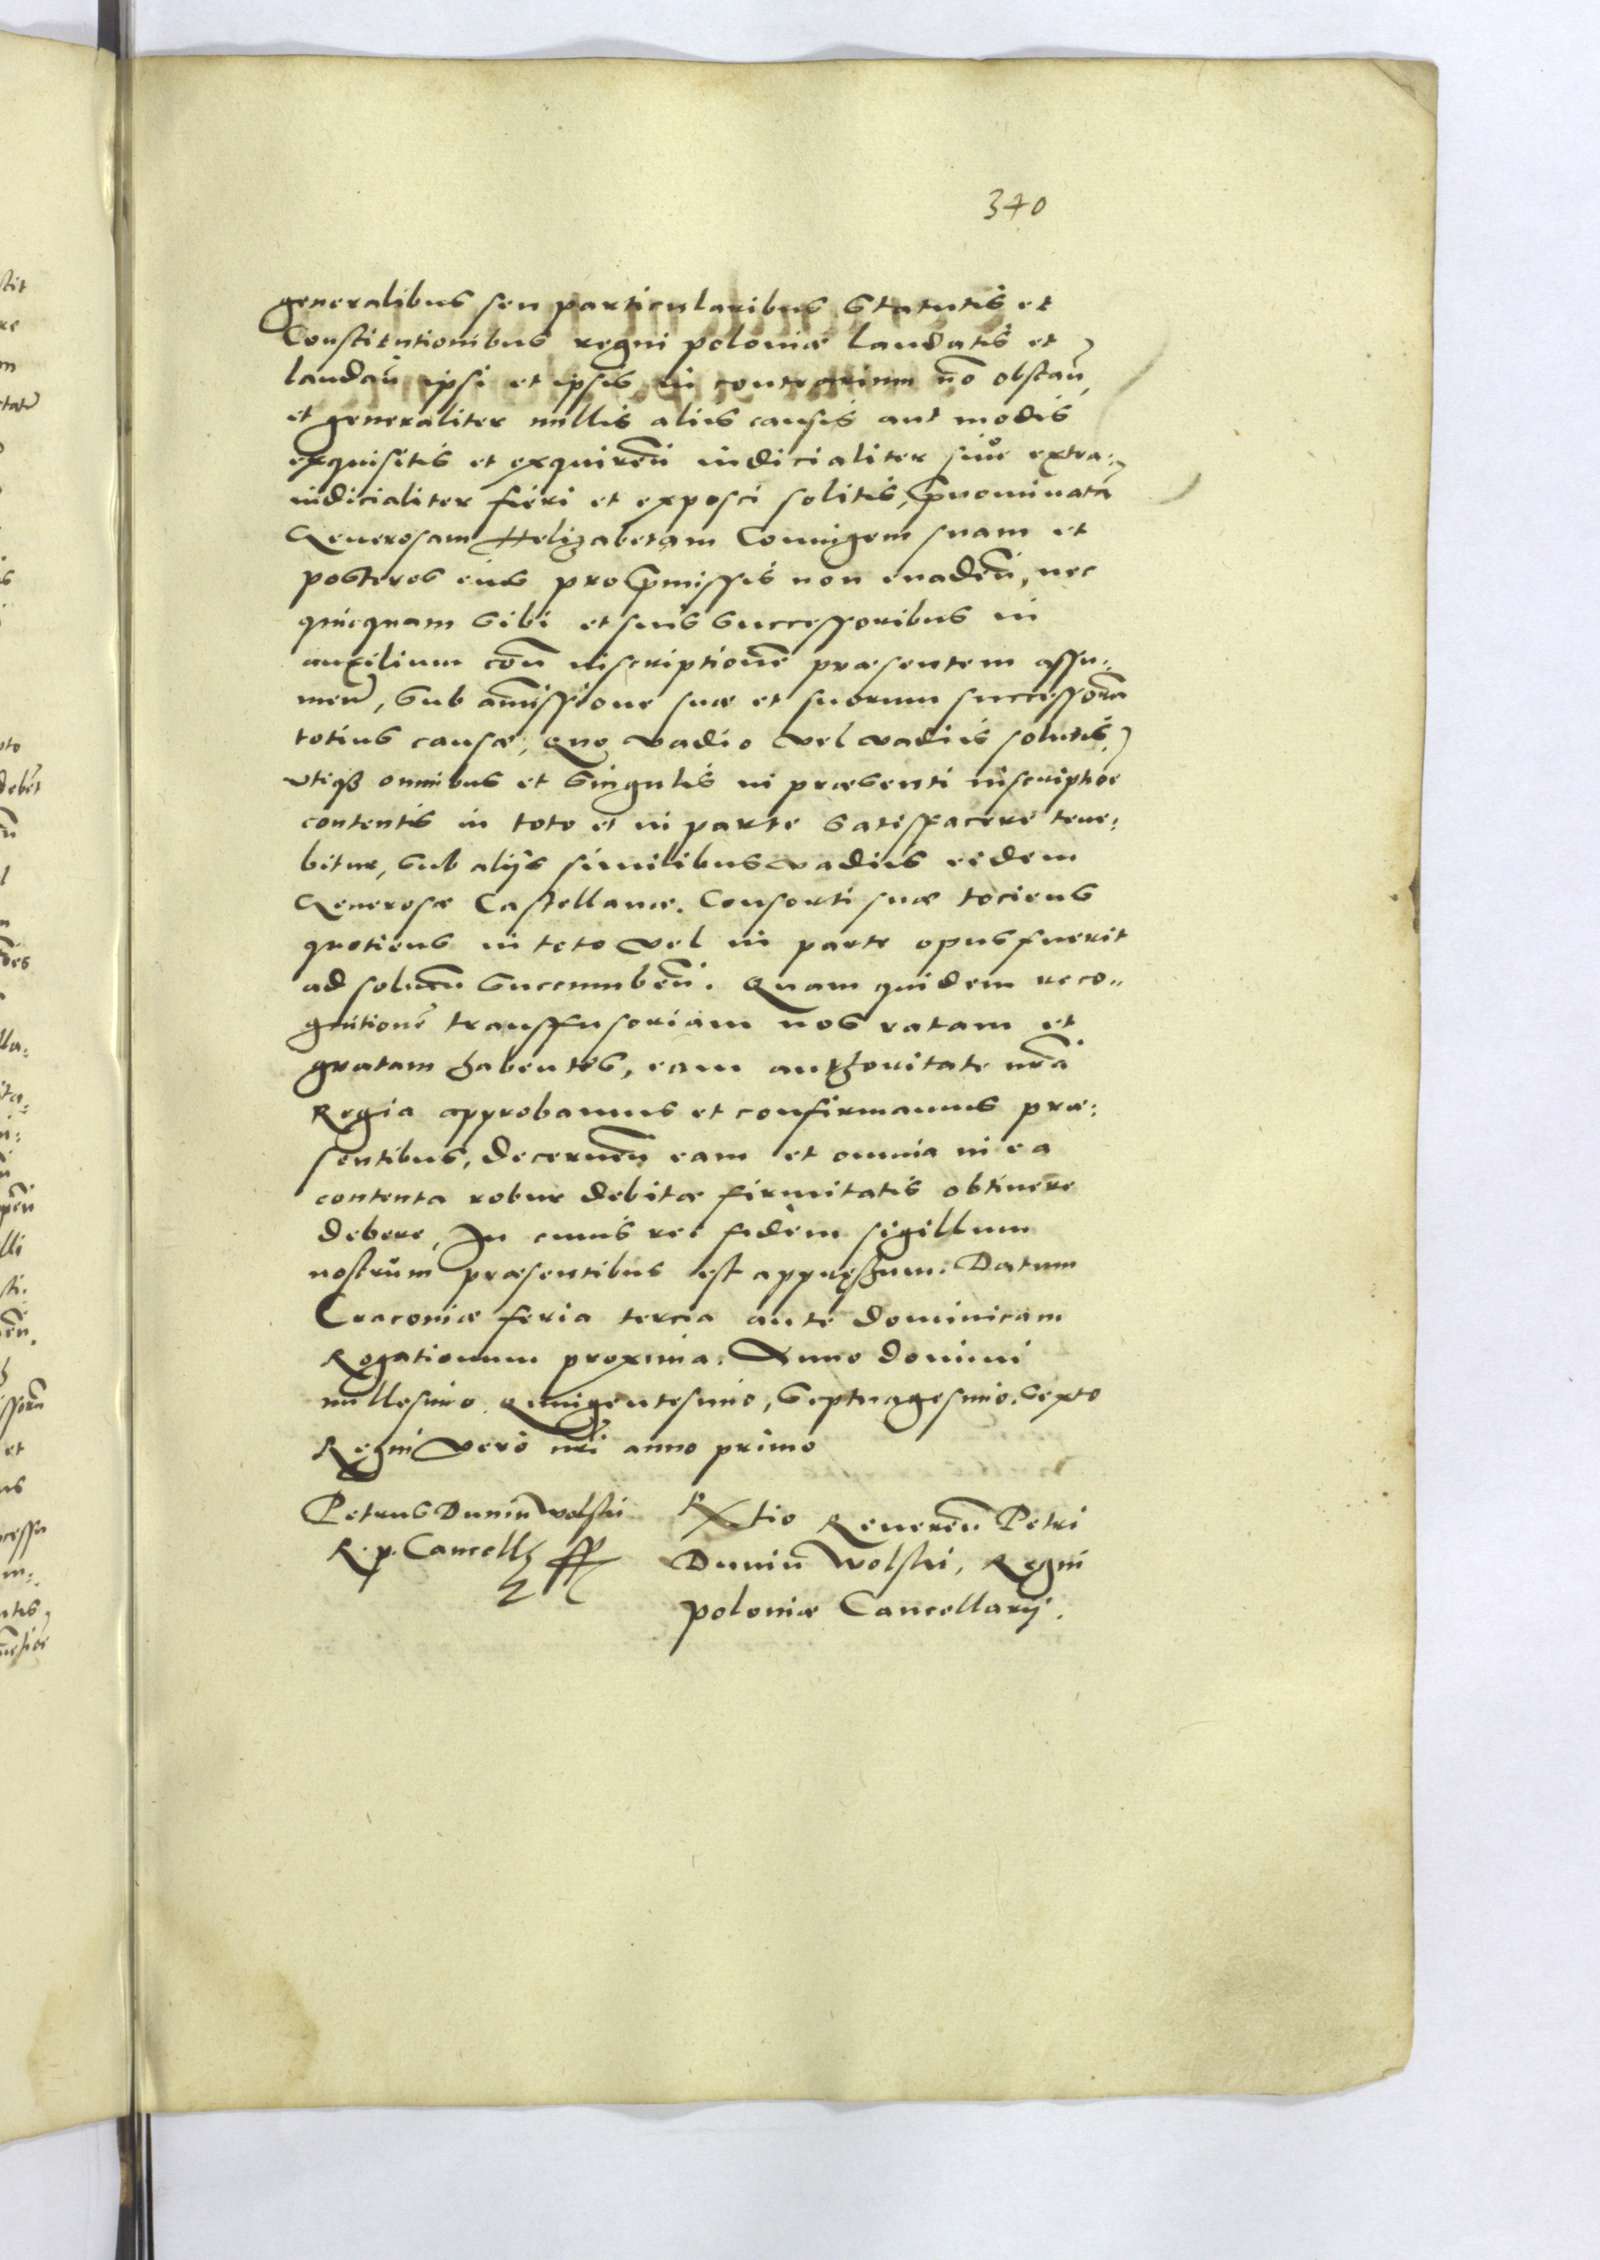 340
generalibus seu particularibus Statutis et
Constitutionibus regni poloniæ laudatis et
laudan̄ ipsi et ipsis in contrarium nō obstan̄,
et generaliter nullis aliis causis aut modis
exquisitis et exquiren̄ iudicialiter siue extra:
iudicialiter fieri et exposci solitis, p̄nominatā
Generosam Helizabetam Coniugem suam et
posteros eius pro p̄missis non euaden̄, nec
quicquam sibi et suis successoribus in
auxilium con̄ inscriptionē præsentem assu:
men̄, sub amissione suæ et suorum successorū
totius causæ, Quo vadio vel vadiis solutis,
vtiqȝ omnibus et singulis in præsenti inscriptioē
contentis in toto et in parte satisfacere tene:
bitur, sub alijs similibus vadiis eidem
Generosæ Castellanæ. Consorti suæ tociens
quotiens in toto vel in parte opus fuerit
ad soluen̄ succumben̄. Quam quidem reco:
gnitionē transfusoriam nos ratam et
gratam habentes, eam authoritate nr̄a
Regia approbamus et confirmamus præ:
sentibus, decernen̄ eam et omnia in ea
contenta robur debitæ firmitatis obtinere
debere, In cuius rei fidem sigillum
nostrum præsentibus est appressum. Datum
Cracoviæ feria tercia ante dominicam
Rogationum proxima. Anno domini
millesimo Quingentesimo, septuagesimo, sexto
Regni vero nr̄i anno primo
Petrus Dunin Wolski
R. p. Cancell
Rtio Reueren̄ Petri
Dunin Wolski, Regni
poloniæ Cancellarij.